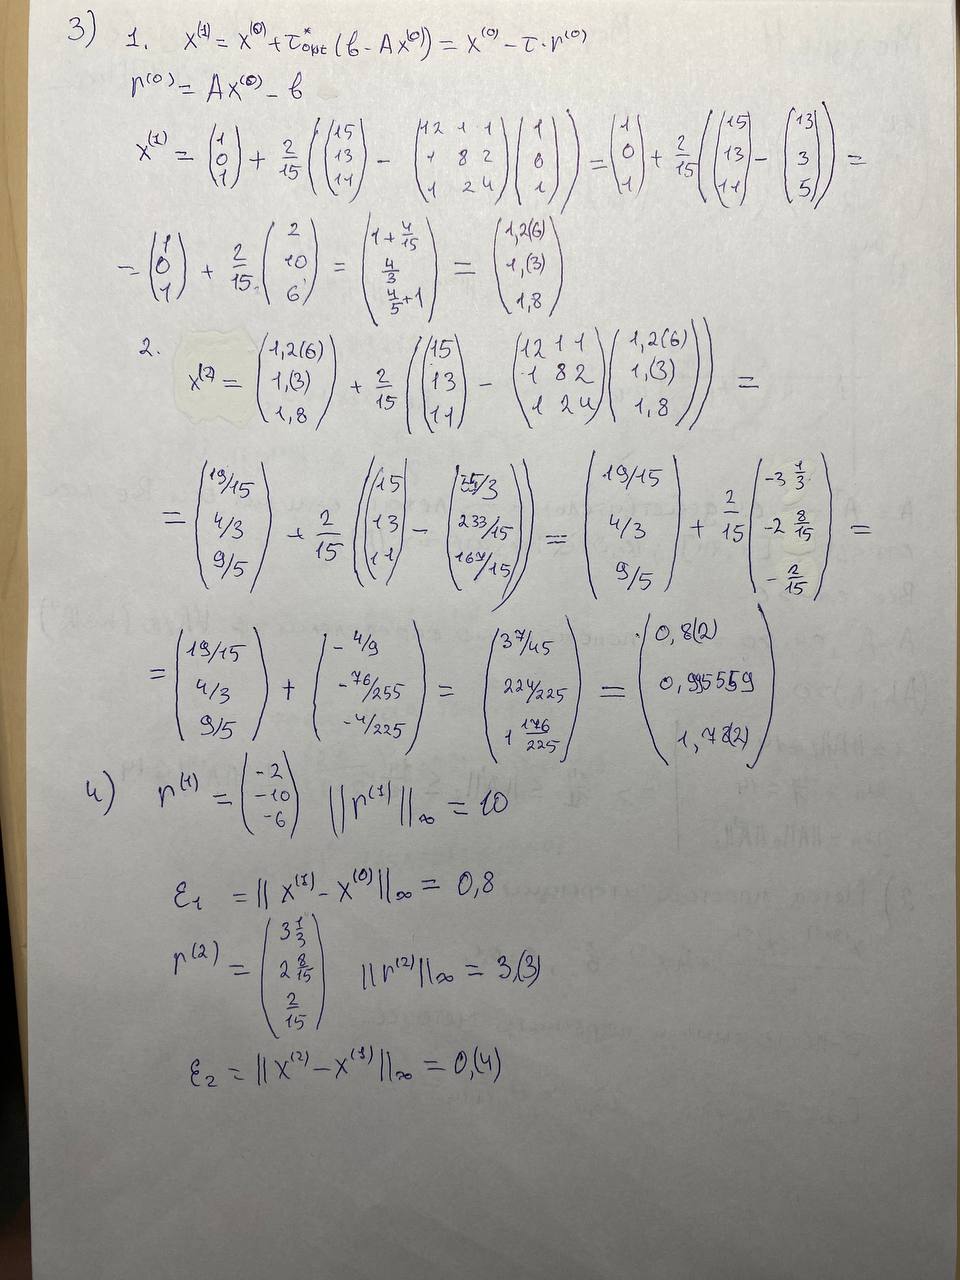 3) 1. x⁽¹⁾ = x⁽⁰⁾ + τ*opt (b - Ax⁽⁰⁾) = x⁽⁰⁾ - τ · r⁽⁰⁾
r⁽⁰⁾ = Ax⁽⁰⁾ - b
x⁽¹⁾ = (1 0 1) + 2/15 ((15 13 11) - (12 1 1 1 8 2 1 2 4) (1 0 1)) = (1 0 1) + 2/15 ((15 13 11) - (13 3 5)) =
= (1 0 1) + 2/15 (2 10 6) = (1 + 4/15 4/3 4/5 + 1) = (1,2(6) 1,(3) 1,8)
2. x⁽²⁾ = (1,2(6) 1,(3) 1,8) + 2/15 ((15 13 11) - (12 1 1 1 8 2 1 2 4) (1,2(6) 1,(3) 1,8)) =
= (19/15 4/3 9/5) + 2/15 ((15 13 11) - (55/3 233/15 167/15)) = (19/15 4/3 9/5) + 2/15 (-3 1/3 -2 8/15 -2/15) =
= (19/15 4/3 9/5) + (-4/9 -76/255 -4/225) = (37/45 224/225 1 176/225) = (0,8(2) 0,995559 1,78(2))
4) r⁽¹⁾ = (-2 -10 -6) ||r⁽¹⁾||∞ = 10
ε₁ = ||x⁽¹⁾ - x⁽⁰⁾||∞ = 0,8
r⁽²⁾ = (3 1/3 2 8/15 2/15) ||r⁽²⁾||∞ = 3,(3)
ε₂ = ||x⁽²⁾ - x⁽¹⁾||∞ = 0,(4)